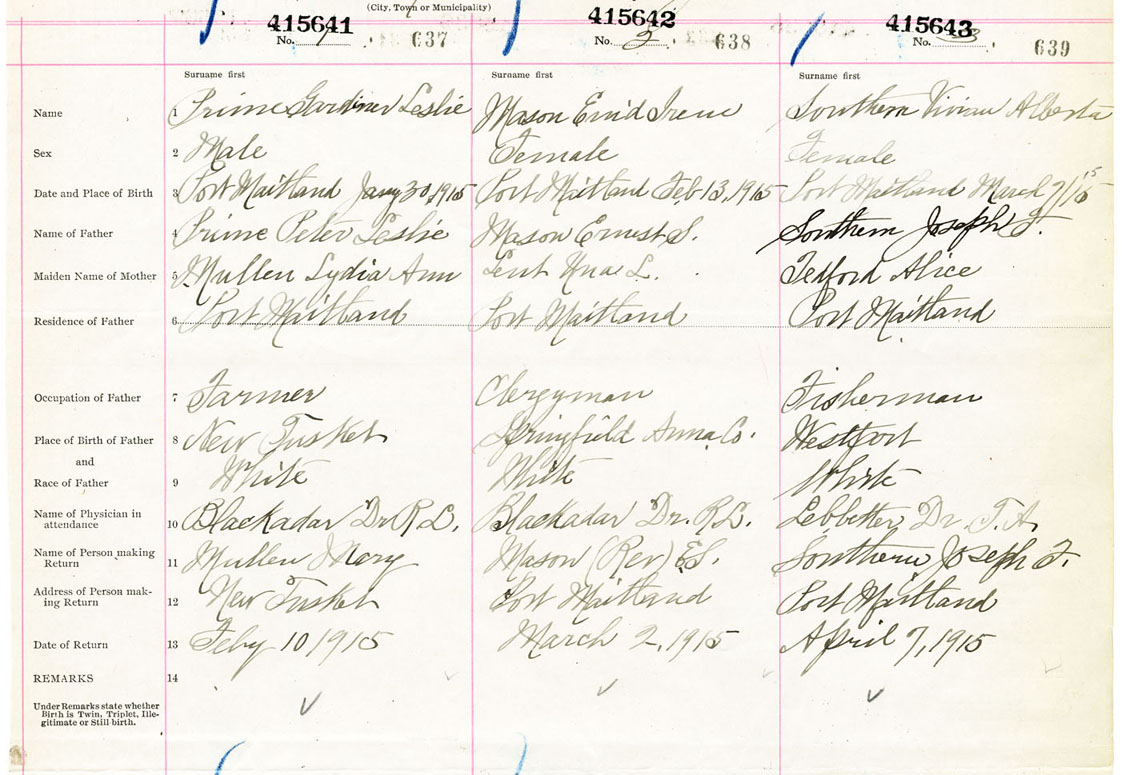 (City, Town or Municipality)
415641 415642 415643
No. 1 637 No. 2 638 No. 3 639
Surname first Surname first Surname first
Name 1 Prime Gardiner Leslie Mason Enid Irene Southern Vivian Alberta
Sex 2 Male Female Female
Date and Place of Birth 3 Port Maitland Jany 30, 1915 Port Maitland Feb 13, 1915 Port Maitland March 7/15
Name of Father 4 Prime Peter Leslie Mason Ernest S. Southern Joseph F.
Maiden Name of Mother 5 Mullen Lydia Ann Lent Una L. Tedford Alice
Residence of Father 6 Port Maitland Port Maitland Port Maitland
Occupation of Father 7 Farmer Clergyman Fisherman
Place of Birth of Father 8 New Tusket Springfield Anna. Co. Westport
and
Race of Father 9 White White White
Name of Physician in
attendance 10 Blackadar Dr R L. Blackadar Dr. R L. Lebbetter, Dr. T. A.
Name of Person making
Return 11 Mullen Mary Mason (Rev) E S. Southern Joseph F.
Address of Person mak-
ing Return 12 New Tusket Port Maitland Port Maitland
Date of Return 13 Feby 10 1915 March 2, 1915 April 7, 1915
REMARKS 14
Under Remarks state whether
Birth is Twin, Triplet, Ille-
gitimate or Still birth.